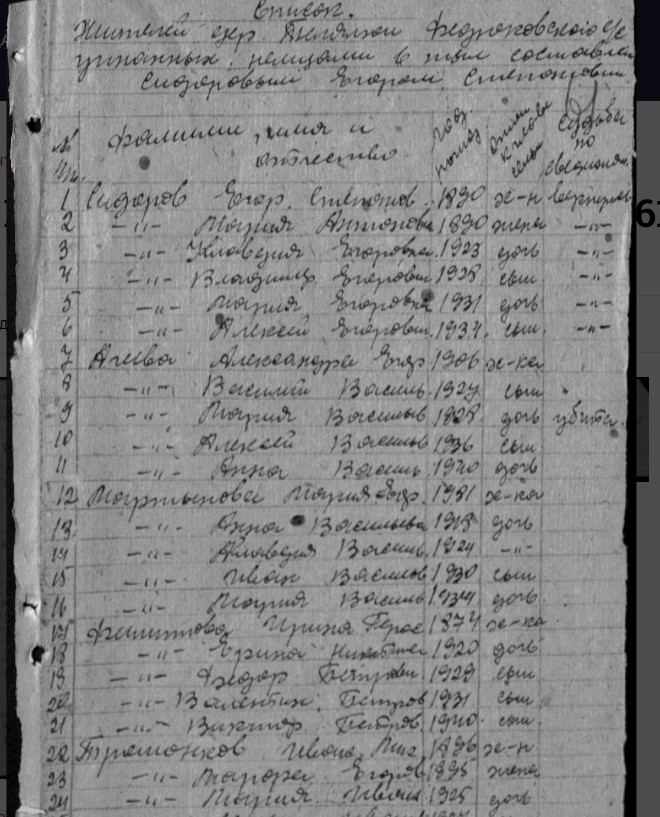 Список.
Жителей дер. Федюковского с/с
угнанных немцами в тыл составлен
Сидоровым Егором Степановичем
№ п/п. фамилия, имя и отчество год рожд. семьи судьба по сведениям
1 Сидоров Егор Степанов. 1890 х-н вернулся
2 -"- Мария Антоновн 1890 жена -"-
3 -"- Клавдия Егоровна 1923 дочь -"-
4 -"- Владимир Егорович 1928 сын -"-
5 -"- Мария Егоровна 1931 дочь -"-
6 -"- Алексей Егорович 1934. сын. -"-
7 Александра Егор. 1906 х-ка
8 -"- Василий Василь. 1927 сын
9 -"- Мария Васильев 1928 дочь убита.
10 -"- Алексей Васильев 1936 сын.
11 -"- Анна Василь. 1940 дочь
12 Мартынова Мария Егор. х-ка
13 -"- Анна Васильева 1918 дочь
14 -"- Клавдия Василь. 1924 -"-
15 -"- Иван Васильев 1930 сын
16 -"- Мария Василь 1934 дочь.
17 Филиппова Ирина Герас 1874 х-ка
18 -"- 1920 дочь
19 -"- Федор Петрович 1929 сын
20 -"- Валентин Петров 1931 сын
21 -"- Виктор Петров 1940. сын.
22 Иван 1896 х-н
23 -"- Егоров 1895 жена
24 -"- Мария Иван 1925 дочь